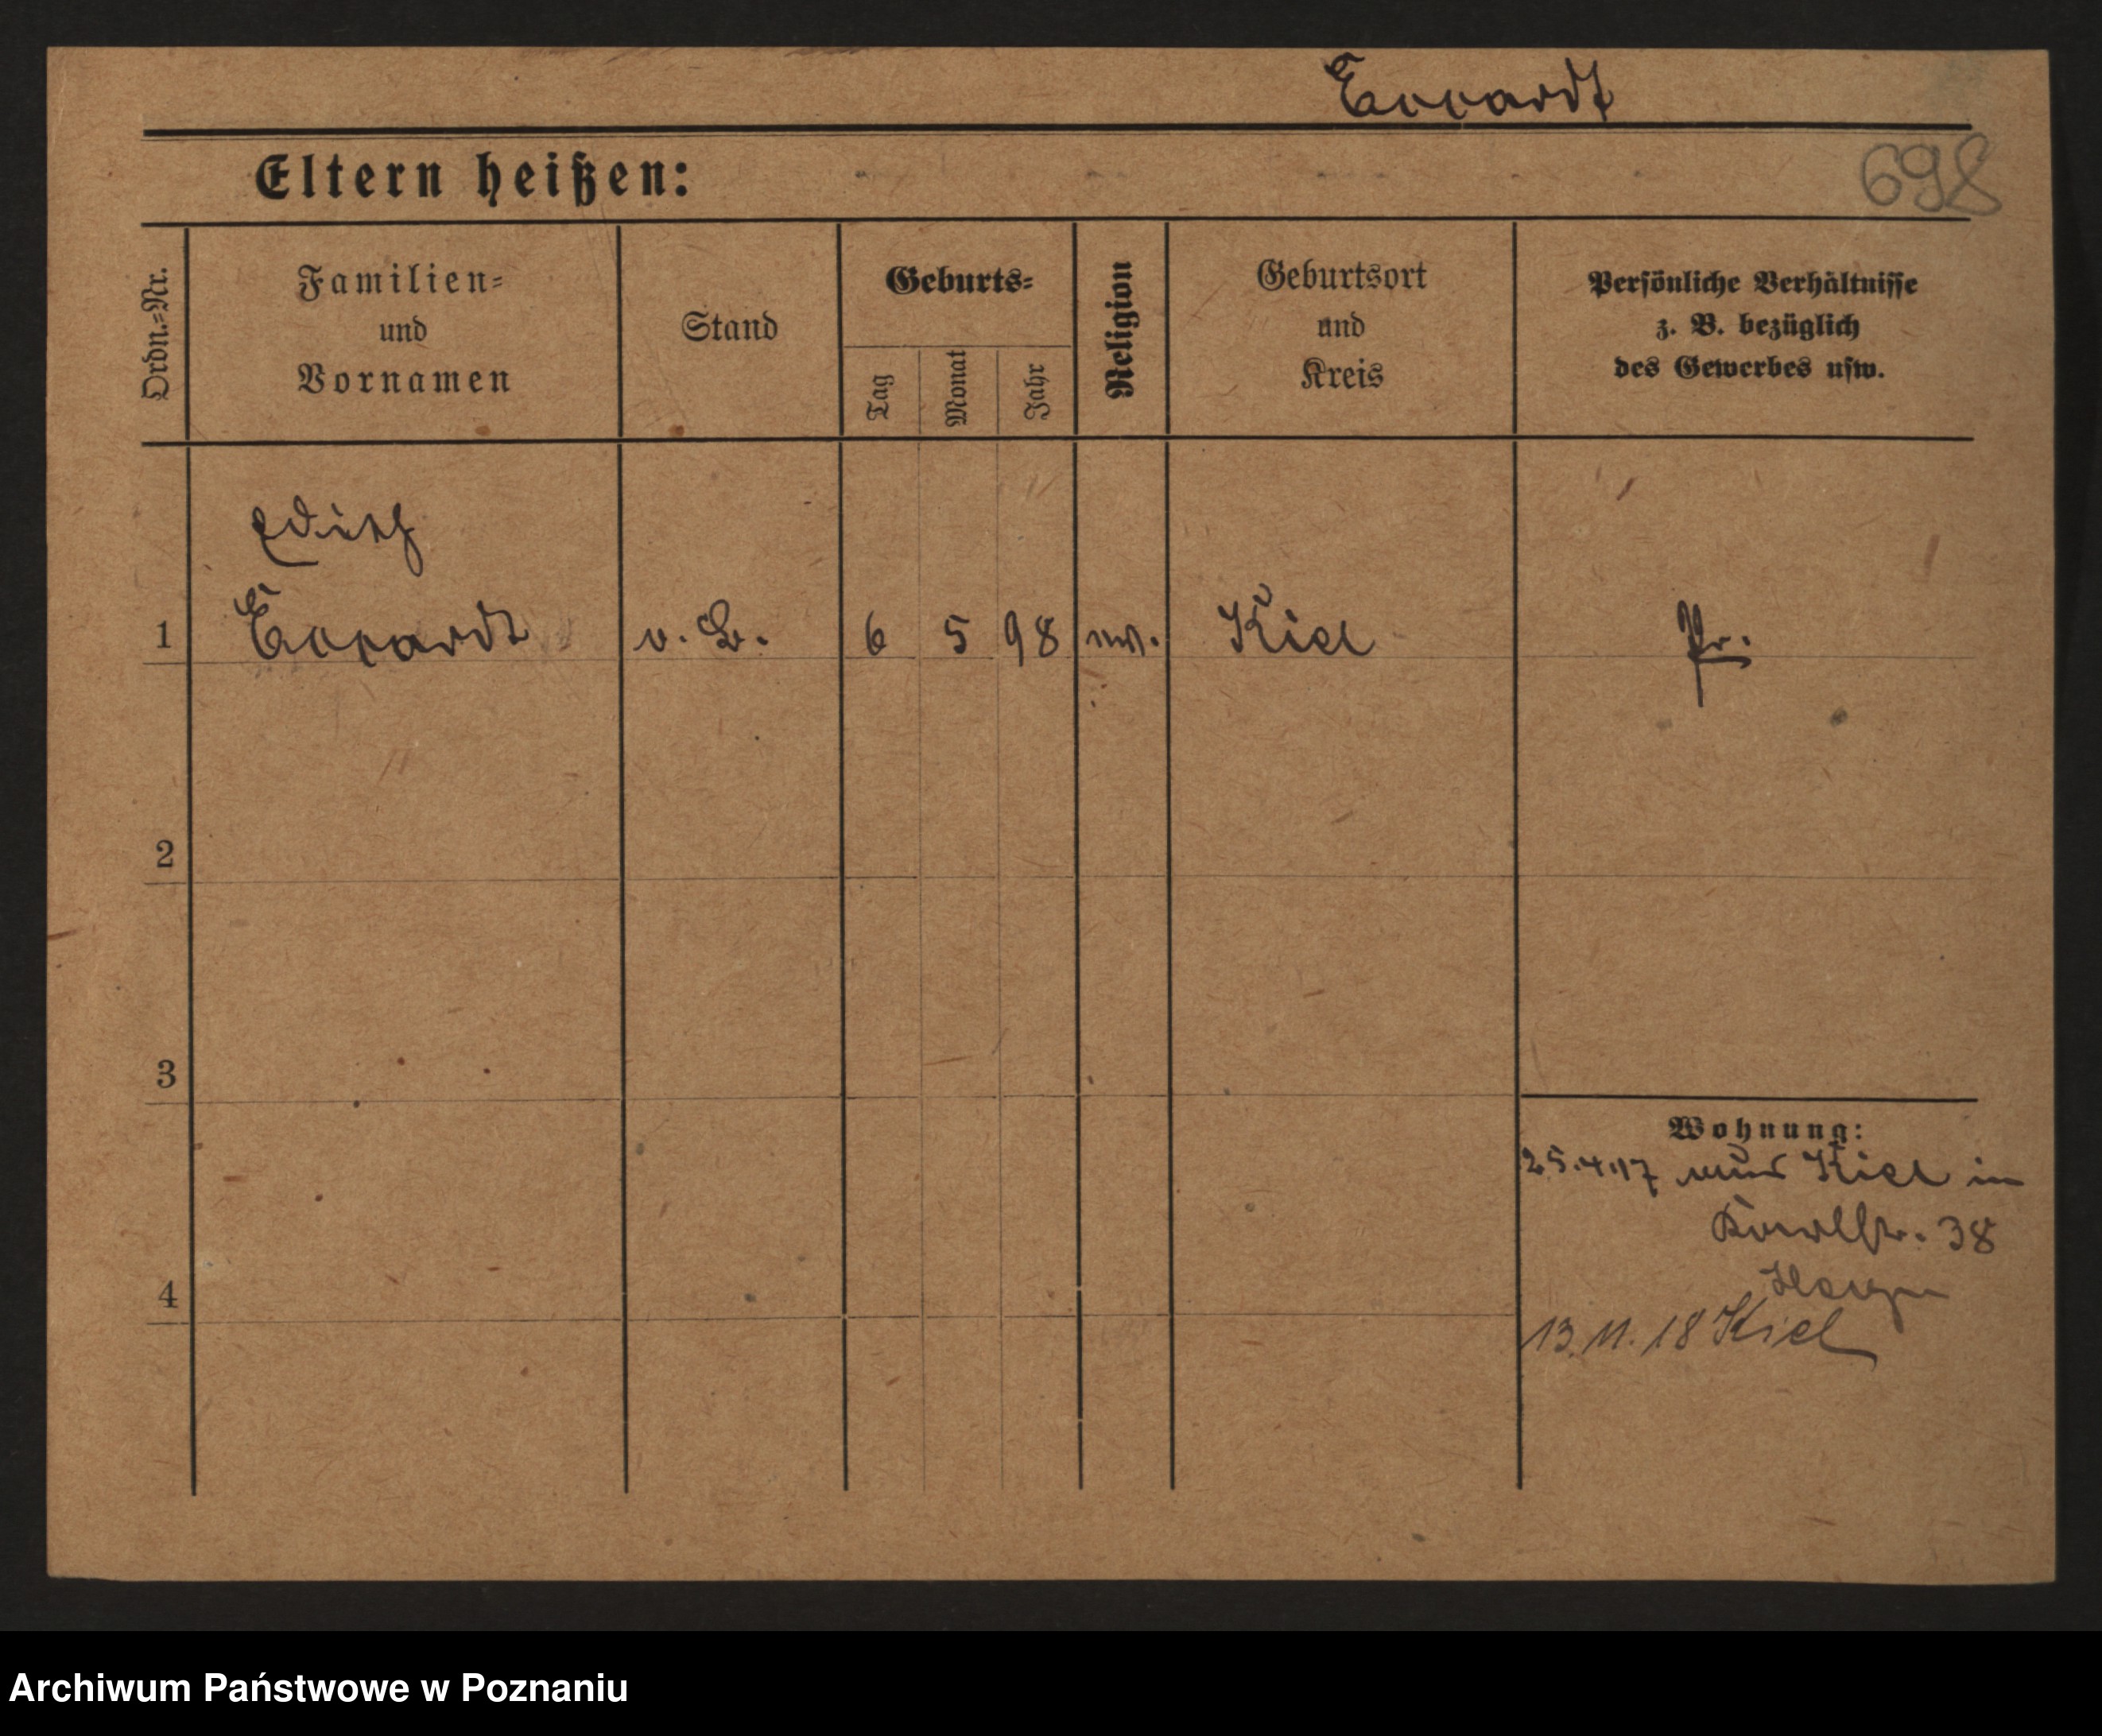 Eccardt
698
Eltern heißen:
Ordn.=Nr.
Familien=
und
Vornamen
Stand
Geburts=
Tag
Monat
Jahr
Religion
Geburtsort
und
Kreis
Persönliche Verhältnisse
z. B. bezüglich
des Gewerbes usw.
Edith
1 Eccardt o. B. 6 5 98 ev. Kiel Pr.
2
3
Wohnung:
25.4.17 aus Kiel in
38
4
13.11.18 Kiel
Archiwum Państwowe w Poznaniu